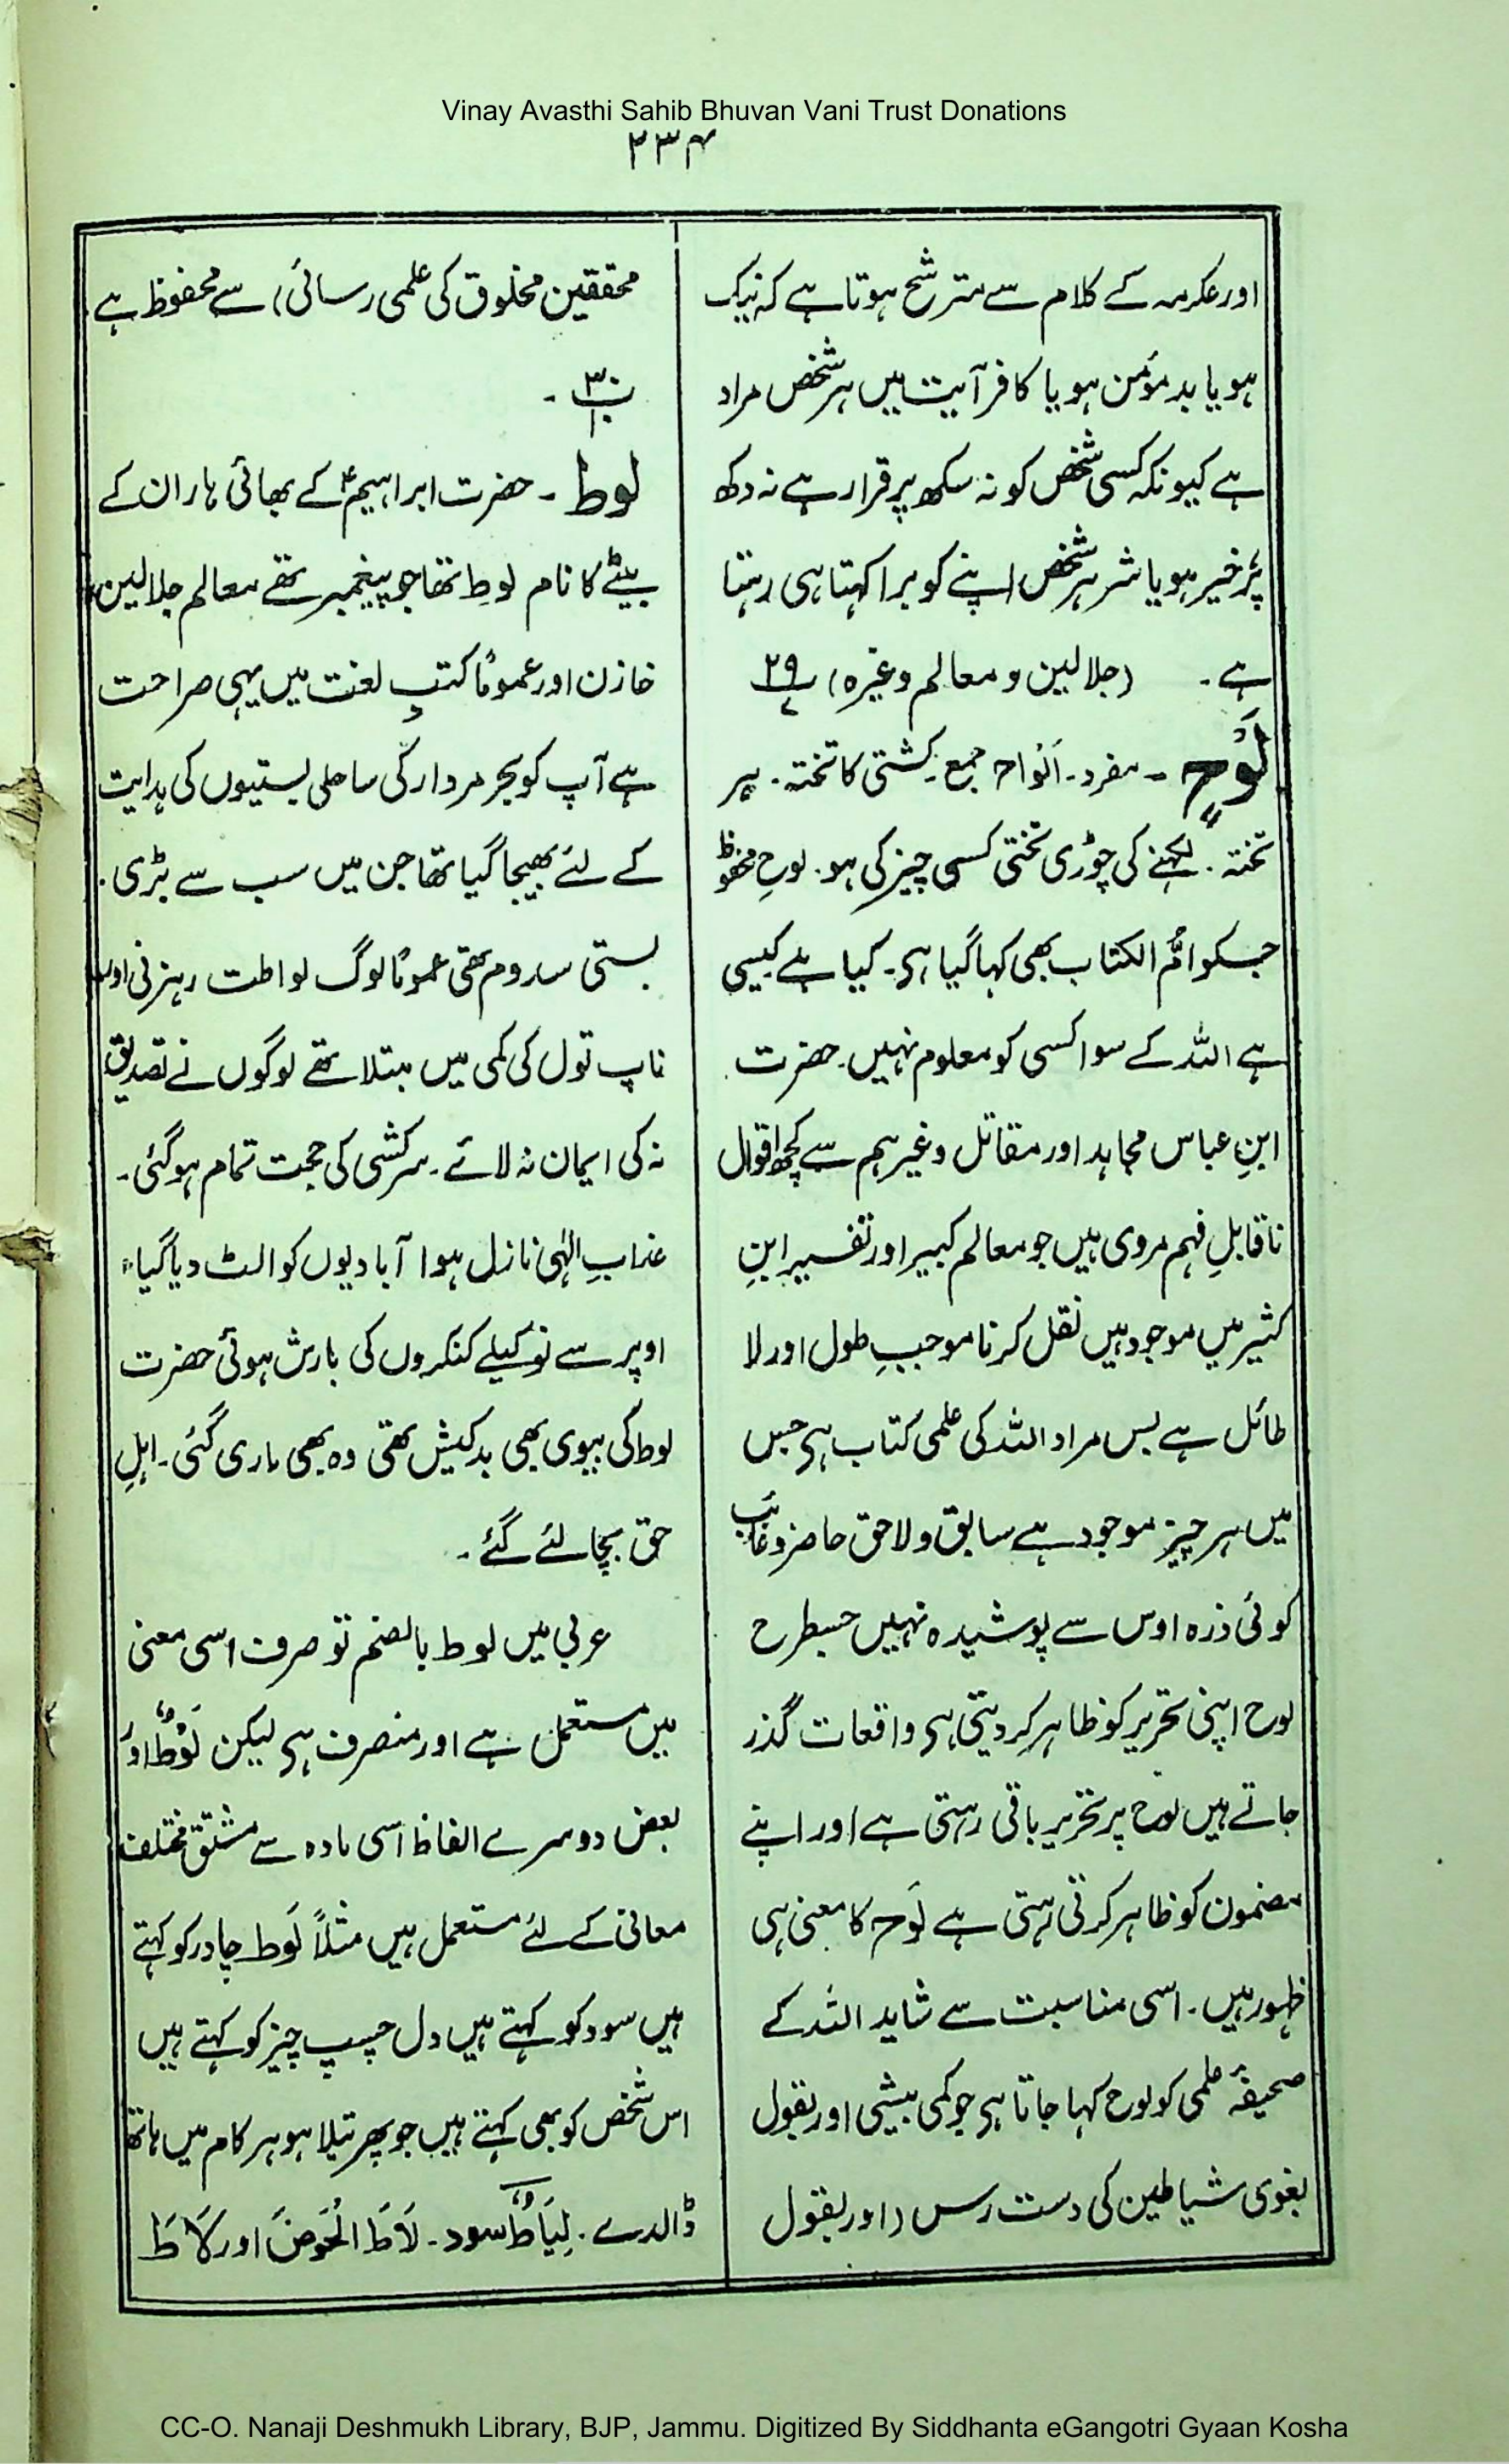 Vinay Avasthi Sahib Bhuvan Vani Trust Donations
۲۳۴
اور عکرمہ کے کلام سے مترشح ہوتا ہے کہ نیک
ہو یا بد مؤمن ہو یا کافر آیت میں ہر شخص مراد
ہے کیونکہ کسی شخص کو نہ سکھ پر قرار ہے نہ دکھ
پر خیر ہو یا شر ہر شخص اپنے کو برا کہتا ہی رہتا
ہے ۔ (جلالین و معالم وغیرہ) ۲۹
لَوْحٍ ۔ مفرد ۔ اَلْوَاح جمع ۔ کشتی کا تختہ ۔ ہر
تختہ ۔ لکہنے کی چوڑی تختی کسی چیز کی ہو ۔ لوحِ محفوظ
جسکو امُّ الکتاب بھی کہا گیا ہی ۔ کیا ہے کیسی
ہے اللہ کے سوا کسی کو معلوم نہیں ۔ حضرت
ابنِ عباس مجاہد اور مقاتل وغیرہم سے کچھ اقوال
ناقابلِ فہم مروی ہیں جو معالم کبیر اور تفسیر ابنِ
کثیر میں موجود ہیں نقل کرنا موجبِ طول اور لا
طائل ہے بس مراد اللہ کی علمی کتاب ہی جس
میں ہر چیز موجود ہے سابق و لاحق حاضر و غائب
کوئی ذرہ اوس سے پوشیدہ نہیں جسطرح
لوح اپنی تحریر کو ظاہر کر دیتی ہی واقعات گذر
جاتے ہیں لوح پر تحریر باقی رہتی ہے اور اپنے
مضمون کو ظاہر کرتی رہتی ہے لَوح کا معنی ہی
ظہور ہیں ۔ اسی مناسبت سے شاید اللہ کے
صحیفۂ علمی کو لوح کہا جاتا ہی جو کمی بیشی اور بقول
بغوی شیاطین کی دست رس (اور بقول
محققین مخلوق کی علمی رسائی) سے محفوظ ہے
۳۰ ۔
لوط ۔ حضرت ابراہیمؑ کے بھائی ہاران کے
بیٹے کا نام لوط تھا جو پیغمبر تھے معالم جلالین
خازن اور عمومًا کتبِ لغت میں یہی صراحت
ہے آپ کو بحر مردار کی ساحلی بستیوں کی ہدایت
کے لئے بھیجا گیا تھا جن میں سب سے بڑی
بستی سدوم تھی عمومًا لوگ لواطت رہزنی اور
ناپ تول کی کمی میں مبتلا تھے لوگوں نے تصدیق
نہ کی ایمان نہ لائے ۔ سرکشی کی حجت تمام ہو گئی ۔
عذابِ الٰہی نازل ہوا آبادیوں کو الٹ دیا گیا
اوپر سے نوکیلے کنکروں کی بارش ہوئی حضرت
لوط کی بیوی بھی بدکیش تھی وہ بھی ماری گئی ۔ اہلِ
حق بچا لئے گئے ۔
عربی میں لوط بالضم تو صرف اسی معنی
میں مستعمل ہے اور منصرف ہی لیکن لَوْطٌ اور
بعض دوسرے الفاظ اسی مادہ سے مشتق مختلف
معانی کے لئے مستعمل ہیں مثلًا لَوط چادر کو کہتے
ہیں سود کو کہتے ہیں دل چسپ چیز کو کہتے ہیں
اس شخص کو بھی کہتے ہیں جو پھرتیلا ہو ہر کام میں ہاتھ
ڈالدے ۔ لِیَاطٌ سود ۔ لَاطَ الْحَوضَ اور لَاطَ
CC-O. Nanaji Deshmukh Library, BJP, Jammu. Digitized By Siddhanta eGangotri Gyaan Kosha